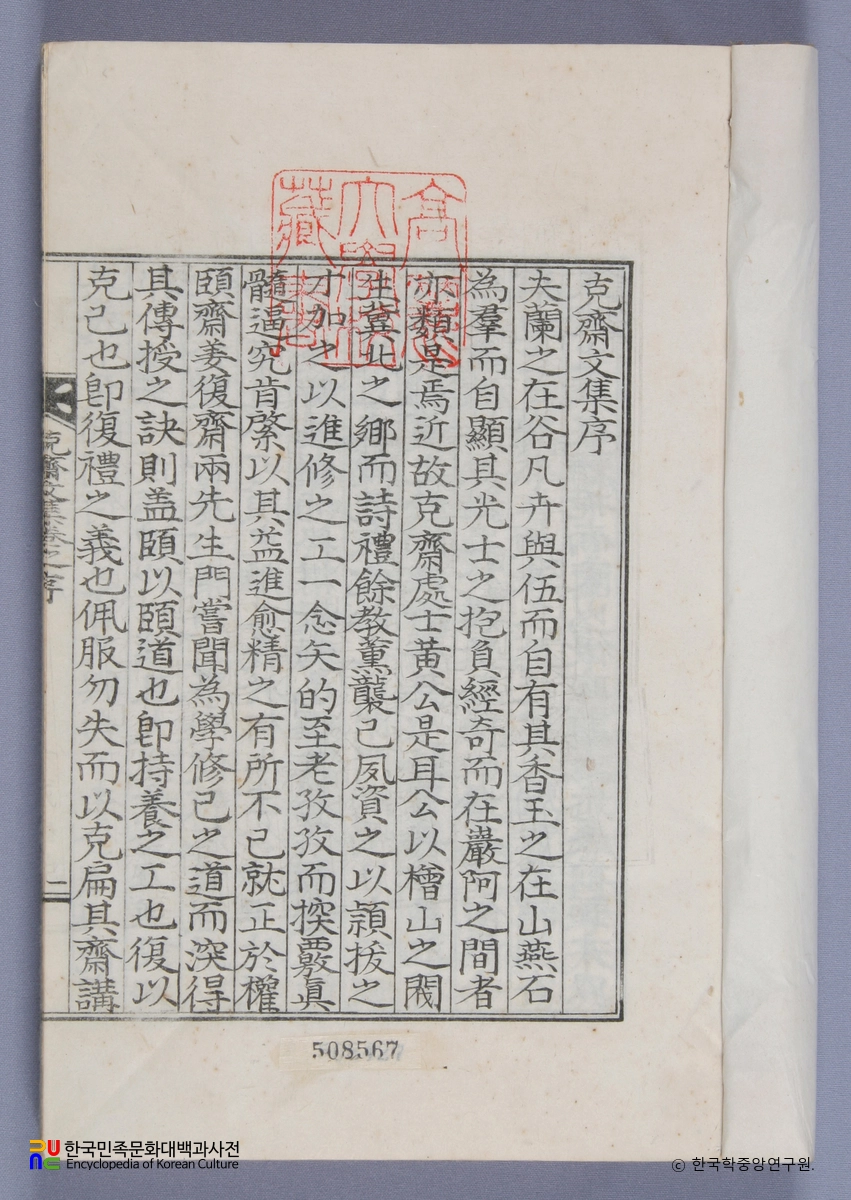 克齋文集序
夫蘭之在谷凡卉與伍而自有其香玉之在山燕石
為羣而自顯其光士之抱負經奇而在巖阿之間者
亦類是焉近故克齋處士黃公是耳公以檜山之閥
生冀北之鄉而詩禮餘教薰襲已夙資之以頴拔之
才加之以進修之工一念矢的至老孜孜而探覈眞
髓逼究肯綮以其益進愈精之有所不已就正於權
頤齋姜復齋兩先生門嘗聞為學修己之道而深得
其傳授之訣則盖頤以頤道也卽持養之工也復以
克己也卽復禮之義也佩服勿失而以克扁其齋講
克齋文集卷之序
二
高
大學
藏
508567
한국민족문화대백과사전
Encyclopedia of Korean Culture
© 한국학중앙연구원.